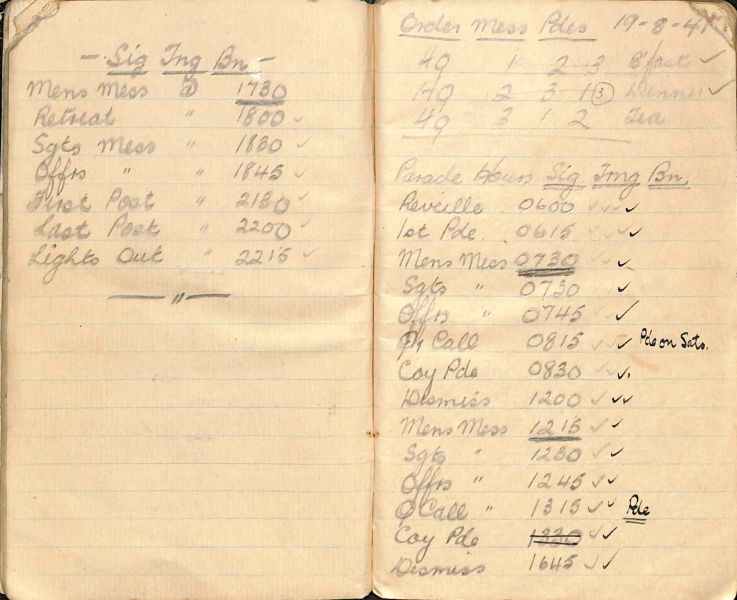 - Sig Tng Bn -
Mens Mess @ 1730
Retreat " 1800 ✓
Sgts Mess " 1830 ✓
Offrs " " 1845 ✓
First Post " 2130 ✓
Last Post " 2200 ✓
Lights Out " 2215 ✓
— " —
Order Mess Pdes 19-8-41
49 1 2 3 B'fast ✓
49 2 3 1 (3) Dinner ✓
49 3 1 2 Tea
Parade Hours Sig Tng Bn.
Reveille 0600 ✓✓✓
1st Pde. 0615 ✓✓✓
Mens Mess 0730 ✓✓✓
Sgts " 0730 ✓✓
Offrs " 0745 ✓✓
Call 0815 ✓✓✓ Pde on Sats.
Coy Pde 0830 ✓✓.
Dismiss 1200 ✓✓✓
Mens Mess 1215 ✓✓
Sgts " 1230 ✓✓
Offrs " 1245 ✓✓
Call " 1315 ✓✓ Pde
Coy Pde 1330 ✓✓
Dismiss 1645 ✓✓